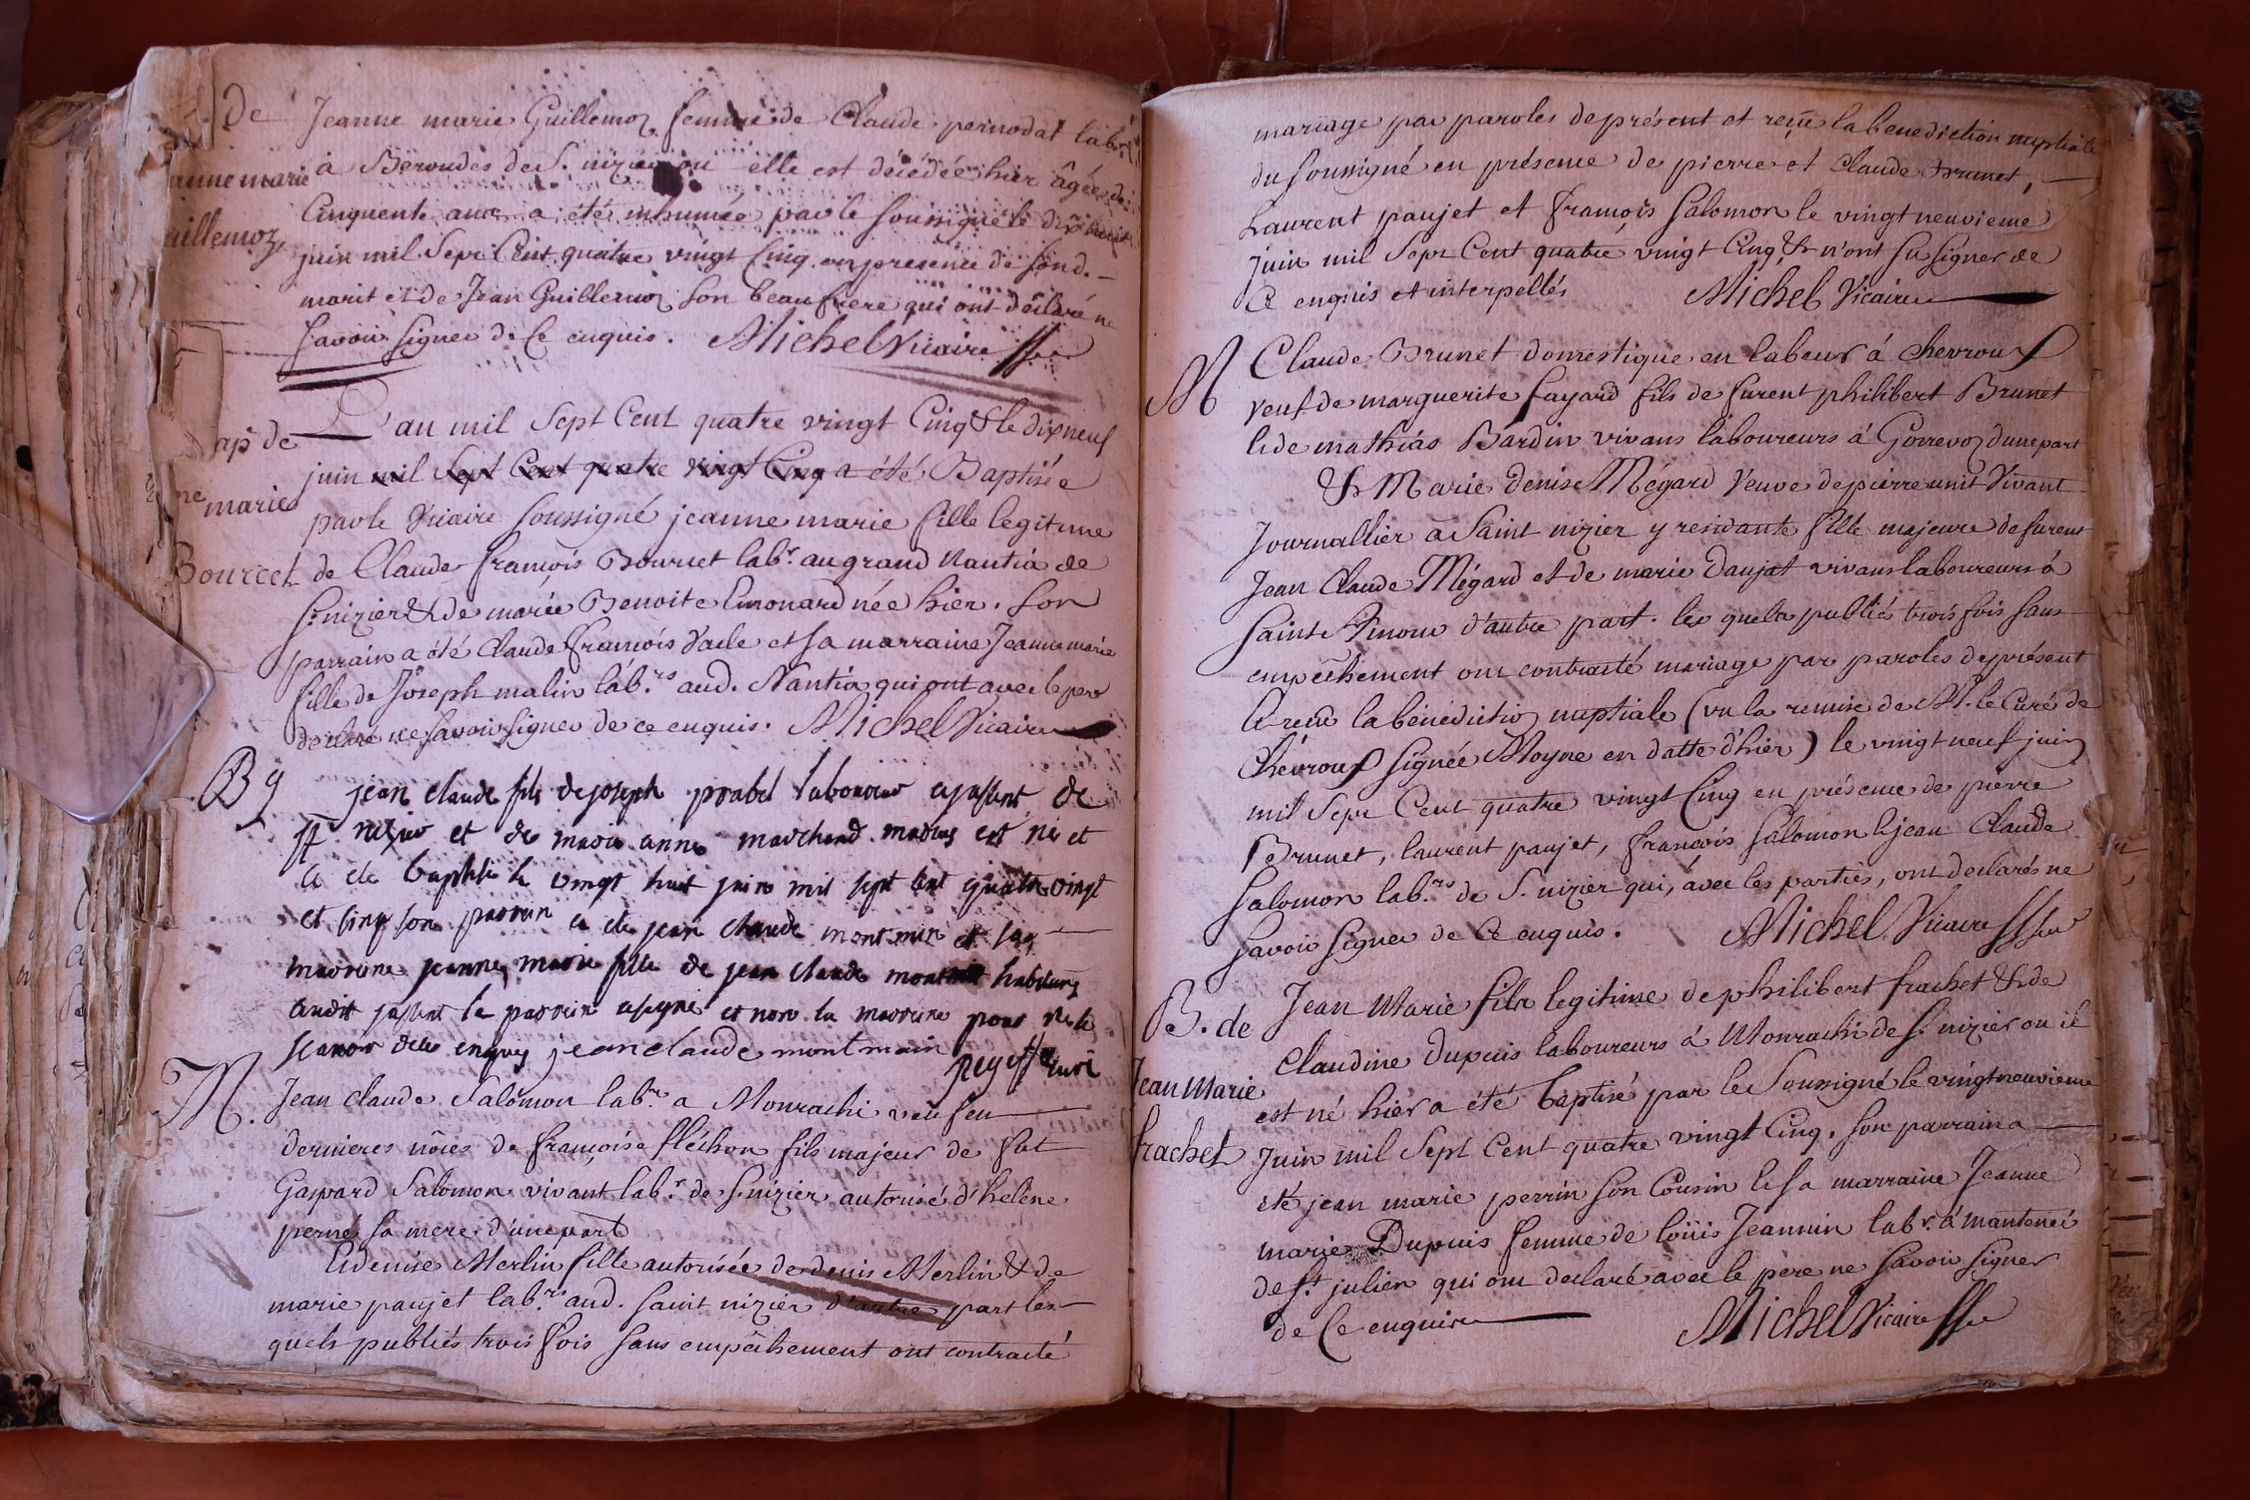 De
Jeanne marie Guillemoz femme de Claude pernodat lab.r
anne marie
à Béroudes de S. nizier ou elle est décédée hier âgée de
uillemoz
Cinquente ans a étée inhumée par le soussigné le dix huit
juin mil Sept Cent quatre vingt Cinq en présence de sond. –
marit et de Jean Guillemoz son beau frere qui ont déclaré ne
savoir signer de Ce enquis. Michel Vicaire
L'an mil Sept Cent quatre vingt Cinq & le dix neuf
Bap. de
juin mil Sept Cent quatre vingt Cinq a été Baptisée
ne marie
par le Vicaire soussigné jeanne marie fille legitime
Bourcet
de Claude françois Bourcet lab.r au grand Nantia de
S. nizier & de marie Benoite Emonard née hier. son
parrain a été Claude françois Vacle et sa marraine Jeanne marie
fille de Joseph malin lab.rs aud. Nantia qui ont avec le pere
déclaré ne savoir signer de ce enquis. Michel Vicaire
B g
jean claude fils de joseph probet laboureur a jassent de
st nizier et de marie anne marchand maries est né et
a ete baptisé le vingt huit juin mil sept cent quatre vingt
et cinq son parrin a ete jean claude montmin et sa
marrene jeanne marie fille de jean claude habitans
audit jassent le parrin a signé et non la marrene pour ne le
scavoir dece enquis jean claude montmain curé
M.
Jean claude Salomon lab.r a Monrachi veu f en
dernieres nôces de françoise fléchon fils majeur de fut
Gaspard Salomon vivant lab.r de S. nizier autorisé d'hélène
pernes sa mere d'une part
& denise Merlin fille autorisée de denis Merlin & de
marie paujet lab.rs aud. saint nizier d'autre part les
quels publiés trois fois sans empêchement ont contracté
mariage par paroles de présent et reçu la benediction nuptiale
du soussigné en présence de pierre et Claude Brunet,
Laurent paujet et françois Salomon le vingt neuvieme
juin mil Sept Cent quatre vingt Cinq & n'ont su signer de
Ce enquis et interpellés Michel Vicaire
M
Claude Brunet domestique en labeur á Chevroux
veuf de marguerite fayard fils de furent philibert Brunet
& de mathias Bardin vivans laboureurs á Gorrevod d'une part
& Marie denise Mégard Veuve de pierre unit Vivant
Journallier a Saint nizier y residante fille majeure de furent
Jean Claude Mégard et de marie Daujat vivans laboureurs á
Sainte d'autre part. les quels publiés trois fois sans
empêchement ont contracté mariage par paroles de présent
& reçu la bénédiction nuptiale (vu la remise de M. le Curé de
Chévroux signée Moyne en datte d'hier) le vingt neuf juin
mil Sept Cent quatre vingt Cinq en présence de pierre
Brunet, laurent paujet, françois Salomon & jean Claude
Salomon lab.rs de S. nizier qui, avec les parties, ont declarés ne
savoir signer de Ce enquis. Michel Vicaire
B. de
Jean Marie fils legitime de philibert frachet & de
Claudine Dupuis laboureurs á Monrachi de S. nizier ou il
Jean Marie
est né hier a été baptisé par le Soussigné le vingt neuvieme
frachet
Juin mil Sept Cent quatre vingt Cinq. son parrain a
été jean marie perrin son Cousin & sa marraine Jeanne
marie Dupuis femme de loüis Jeannin lab.r á mantenei
de S.t julien qui ont declaré avec le pere ne savoir signer
de Ce enquis Michel Vicaire